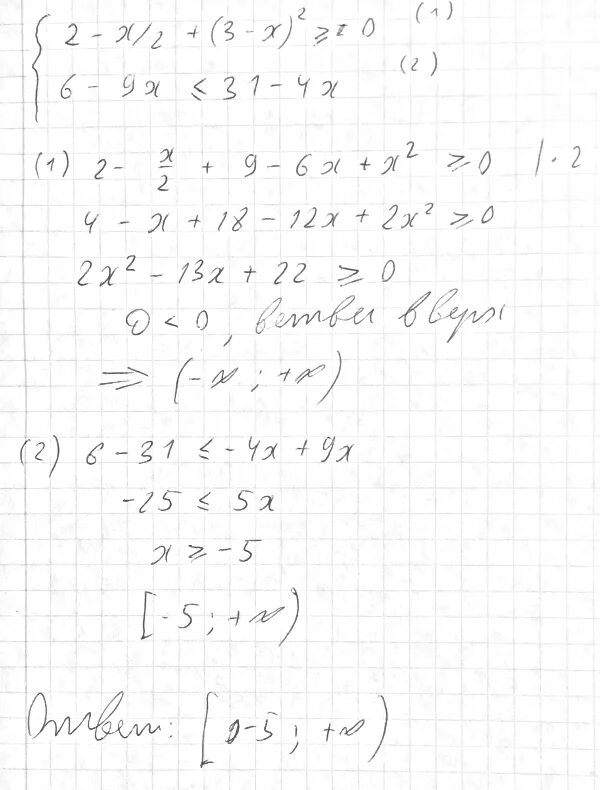 2 - x/2 + (3 - x)² ≥ 0 (1)
6 - 9x ≤ 31 - 4x (2)
(1) 2 - x/2 + 9 - 6x + x² ≥ 0 | · 2
4 - x + 18 - 12x + 2x² ≥ 0
2x² - 13x + 22 ≥ 0
D < 0, ветви вверх
⇒ (-∞; +∞)
(2) 6 - 31 ≤ -4x + 9x
-25 ≤ 5x
x ≥ -5
[-5; +∞)
Ответ: [-5; +∞)